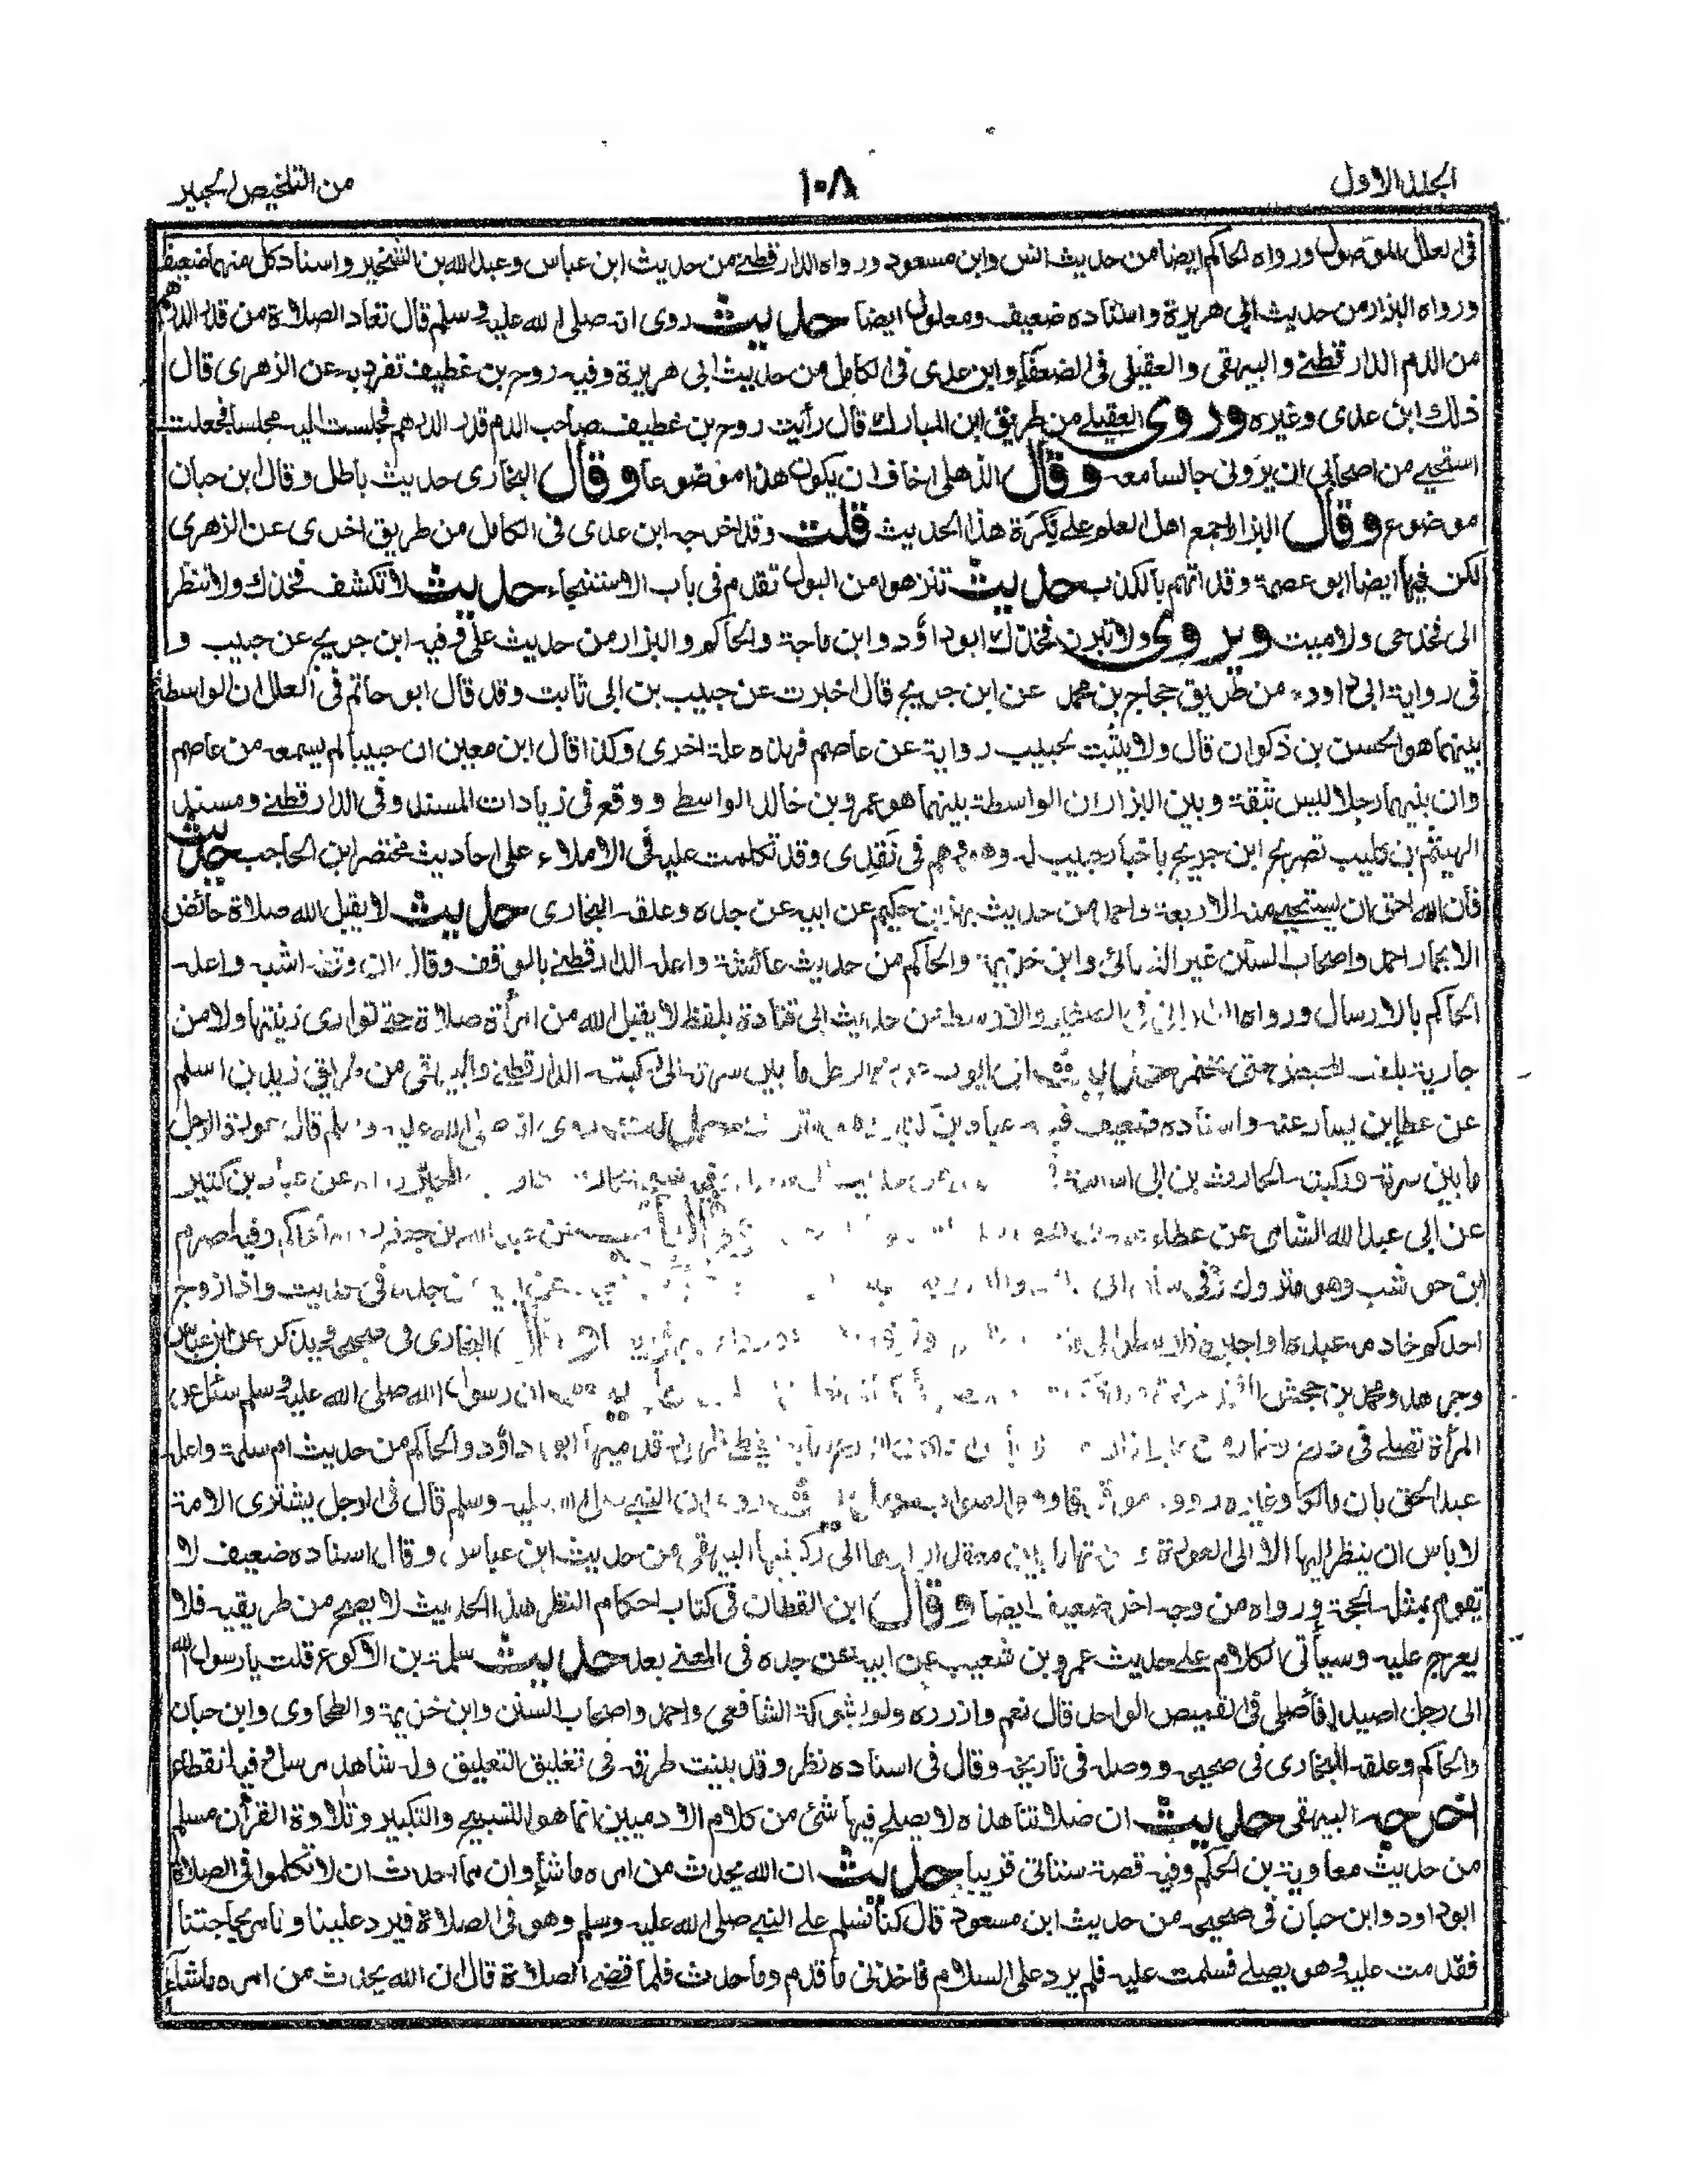 الجلد الاول
١٠٨
من التلخيص الحبير
فى العلل الموصول ورواه الحاكم ايضا من حديث انس وابن مسعود ورواه الدارقطنے من حديث ابن عباس وعبد الله بن الشخير واسناد كل منهما ضعيف
ورواه البزار من حديث ابى هريرة واسناده ضعيف ومعلول ايضا حديث روى انه صلى الله عليه وسلم قال تعاد الصلاة من قدر الدرهم
من الدم الدارقطنے والبيهقى والعقيلى فى الضعفاء وابن عدى فى الكامل من حديث ابى هريرة وفيه روح بن غطيف تفرد به عن الزهرى قال
ذلك ابن عدى وغيره وروى العقيلے من طريق ابن المبارك قال رأيت روح بن غطيف صاحب الدم قدر الدرهم فجلست اليه مجلسا فجعلت
استحيے من اصحابى ان يرونى جالسا معه وقال الذهلى اخاف ان يكون هذا موضوعا وقال البخارى حديث باطل وقال ابن حبان
موضوع وقال البزار اجمع اهل العلم علے نكرة هذا الحديث قلت وقد اخرجه ابن عدى فى الكامل من طريق اخرى عن الزهرى
لكن فيها ايضا ابو عصمة وقد اتهم بالكذب حديث تنزهوا من البول تقدم فى باب الاستنجاء حديث لا تكشف فخذك ولا تنظر
الى فخذ حى ولا ميت ويروى ولا تبرز فخذك ابو داؤد وابن ماجة والحاكم والبزار من حديث على وفيه ابن جريج عن حبيب و
فى رواية ابى داود من طريق حجاج بن محمد عن ابن جريج قال اخبرت عن حبيب بن ابى ثابت وقد قال ابو حاتم فى العلل ان الواسطة
بينهما هو الحسن بن ذكوان قال ولا يثبت لحبيب رواية عن عاصم فهذه علة اخرى وكذا قال ابن معين ان حبيبا لم يسمعه من عاصم
وان بينهما رجلا ليس بثقة وبين البزار ان الواسطة بينهما هو عمرو بن خالد الواسطے ووقع فى زيادات المسند وفى الدارقطنے ومسند
الهيثم بن كليب تصريح ابن جريج باخبار حبيب له وهو وهم فى نقدى وقد تكلمت عليه فى الاملاء على احاديث مختصر ابن الحاجب حديث
فان الله احق ان يستحيے منه الاربعة واحمد من حديث بهز بن حكيم عن ابيه عن جده وعلقه البخارى حديث لا يقبل الله صلاة حائض
الا بخمار احمد واصحاب السنن غير النسائى وابن خزيمة والحاكم من حديث عائشة واعله الدارقطنے بالوقف وقال ان وقفه اشبه واعله
الحاكم بالارسال ورواه الطبرانى فى الصغير والاوسط من حديث ابى قتادة بلفظ لا يقبل الله من امرأة صلاة حتے توارى زينتها ولا من
جارية بلغت المحيض حتى تختمر حديث ابى ايوب عورة الرجل ما بين سرته الى ركبته الدارقطنے والبيهقى من طريق زيد بن اسلم
عن عطاء بن يسار عنه واسناده ضعيف فيه عباد بن كثير وهو متروك حديث روى انه صلى الله عليه وسلم قال عورة الرجل
ما بين سرته وركبته الحارث بن ابى اسامة عن عباد بن كثير
عن ابى عبد الله الشامى عن عطاء وفى الباب عن عبد الله بن جعفر رواه الحاكم وفيه اصرم
ابن حوشب وهو متروك وفى سنن ابى عن جده فى حديث واذا زوج
احدكم خادمه عبده او اجيره فلا ينظر الى البخارى فى صحيحه ويذكر عن ابن عباس
وجرهد ومحمد بن جحش ان رسول الله صلى الله عليه وسلم سئل عن
المرأة تصلے فى درع وخمار ظهور قدميها ابو داؤد والحاكم من حديث ام سلمة واعله
عبد الحق بان مالكا وغيره رووه موقوفا وهو الصواب حديث روى ان النبے صلى الله عليه وسلم قال فى الرجل يشترى الامة
لا باس ان ينظر اليها الا الى العورة وعورتها ما بين معقد ازارها الى ركبتيها البيهقى من حديث ابن عباس وقال اسناده ضعيف لا
تقوم بمثله الحجة ورواه من وجه اخر ضعيف ايضا وقال ابن القطان فى كتاب احكام النظر هذا الحديث لا يصح من طريقيه فلا
يعرج عليه وسيأتى الكلام علے حديث عمرو بن شعيب عن ابيه عن جده فى المعنے بعد حديث سلمة بن الاكوع قلت يا رسول الله
انى رجل اصيد افأصلى فى القميص الواحد قال نعم وازرره ولو بشوكة الشافعى واحمد واصحاب السنن وابن خزيمة والطحاوى وابن حبان
والحاكم وعلقه البخارى فى صحيحه ووصله فى تاريخه وقال فى اسناده نظر وقد بينت طرقه فى تغليق التعليق وله شاهد مرسل وفيه انقطاع
اخرجه البيهقى حديث ان صلاتنا هذه لا يصلح فيها شئ من كلام الادميين انما هو التسبيح والتكبير وتلاوة القرآن مسلم
من حديث معاوية بن الحكم وفيه قصة ستاتى قريبا حديث ان الله يحدث من امره ما شاء وان مما احدث ان لا تكلموا فى الصلاة
ابو داود وابن حبان فى صحيحه من حديث ابن مسعود قال كنا نسلم علے النبے صلى الله عليه وسلم وهو فى الصلاة فيرد علينا ونامر بحاجتنا
فقدمت عليه وهو يصلے فسلمت عليه فلم يرد على السلام فاخذنى ما قدم وما حدث فلما قضے الصلاة قال ان الله يحدث من امره ما شاء